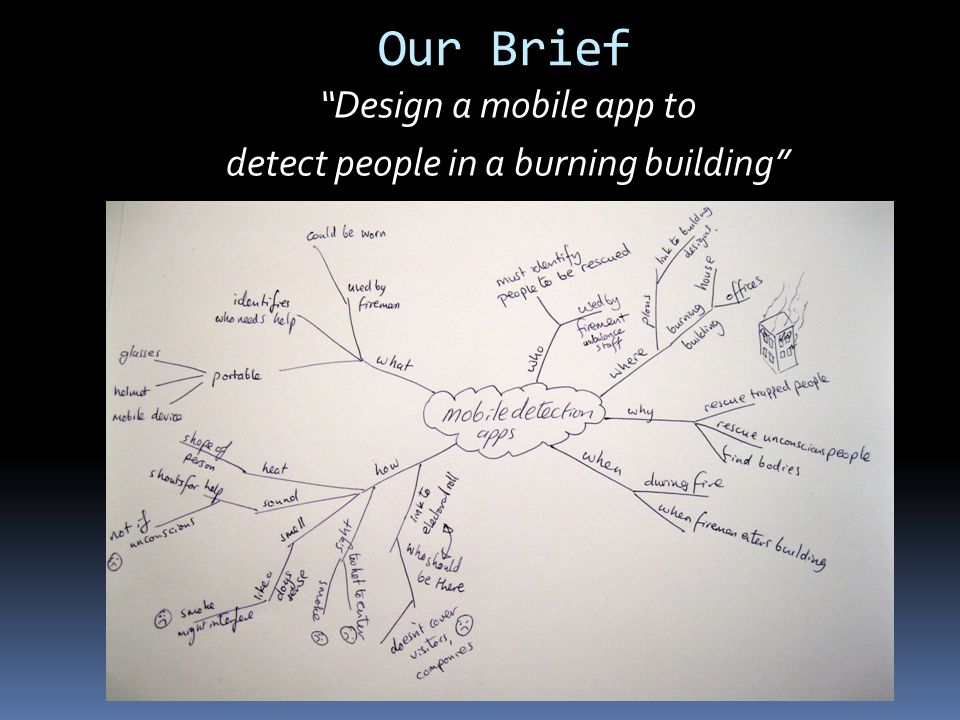 Our Brief
“Design a mobile app to
detect people in a burning building”
mobile detection
apps
what
used by
fireman
could be worn
identifies
who needs help
portable
glasses
helmet
mobile device
who
must identify
people to be rescued
used by
firement
ambulance
staff
where
plans
link to building
designs.
burning
building
house
offices
why
rescue trapped people
rescue unconscious people
find bodies
when
during fire
when firemen enters building
how
heat
shape of
person
sound
shouts for help
not if
unconscious
smell
like a
dogs
sense
smoke
might interfere
sight
smoke
too hot to enter
link to
electoral roll
who should
be there
doesn't cover
visitors,
companies